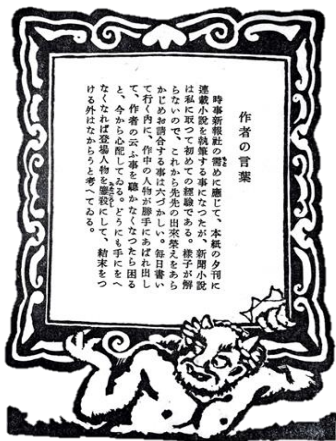 作者の言葉
時事新報社の需めに應じて、本紙の夕刊に
連載小說を執筆する事になつたが、新聞小說
は私に取つて初めての經驗である。樣子が解
らないので、これから先先の出來榮えをあら
かじめお請合する事は六づかしい。每日書い
て行く内に、作中の人物が勝手にあばれ出し
て、作者の云ふ事を聽かなくなつたら困る
と、今から心配してゐる。どうにも手にをへ
なくなれば登場人物を鏖殺にして、結末をつ
ける外はなからうと考へてゐる。